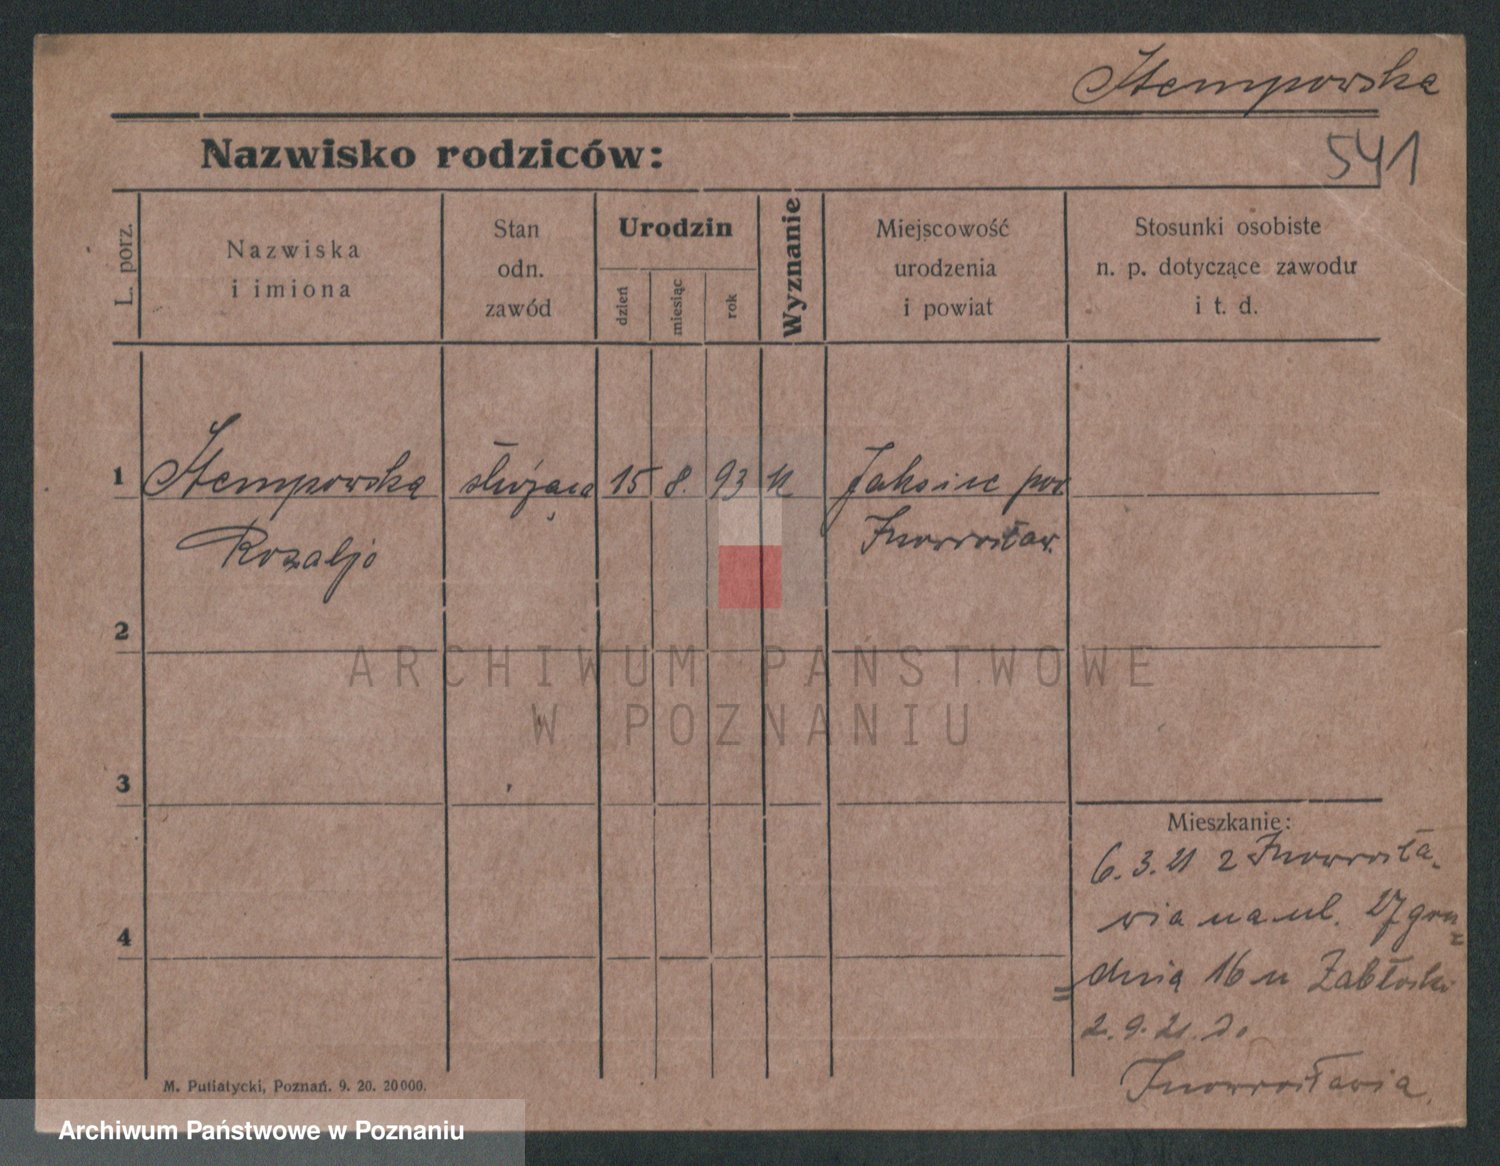 Stempowska
541
Nazwisko rodziców:
L. porz.
Nazwiska
i imiona
Stan
odn.
zawód
Urodzin
dzień
miesiąc
rok
Wyznanie
Miejscowość
urodzenia
i powiat
Stosunki osobiste
n. p. dotyczące zawodu
i t. d.
1
Stempowska
Rozalja
służąca
15
8.
93
k
Jaksice pow
Inowrocław.
2
3
4
ARCHIWUM PAŃSTWOWE
W POZNANIU
Mieszkanie:
6.3.21 z Inowrocła-
wia na ul. 27 gru=
=dnia 16 u Zabłocki
2.9.21. do
Inowrocławia.
M. Putiatycki, Poznań. 9. 20. 20000.
Archiwum Państwowe w Poznaniu